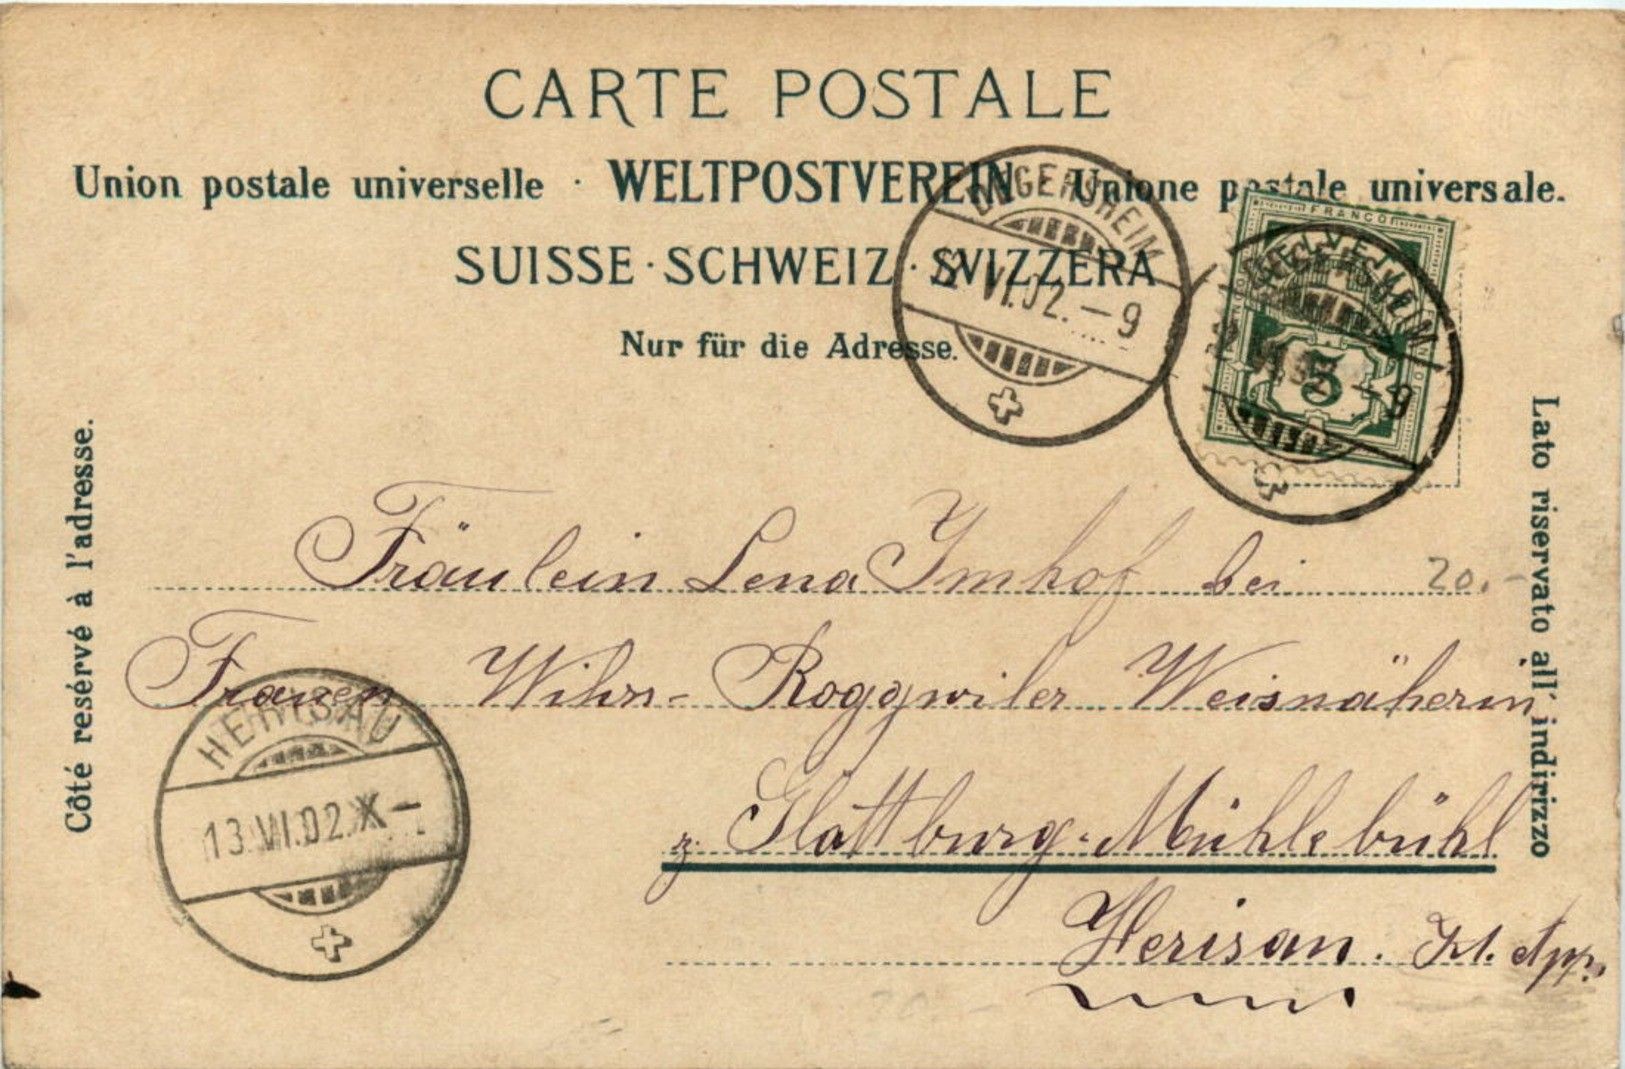 CARTE POSTALE
Union postale universelle · WELTPOSTVEREIN · Unione postale universale.
SUISSE · SCHWEIZ · SVIZZERA
Nur für die Adresse.
DEGERSHEIM
12 VI.02.–9
FRANCO
HELVETIA
5
DEGERSHEIM
VI.02.–9
Côté resérvé à l'adresse.
Lato riservato all' indirizzo
Fräulein Lena Imhof bei
20.-
Frauen Wihr- Roggwiler Weisnäherin
z. Glattburg-Mühlebühl
Herisau. Kt. App.
HERISAU
13.VI.02.X–